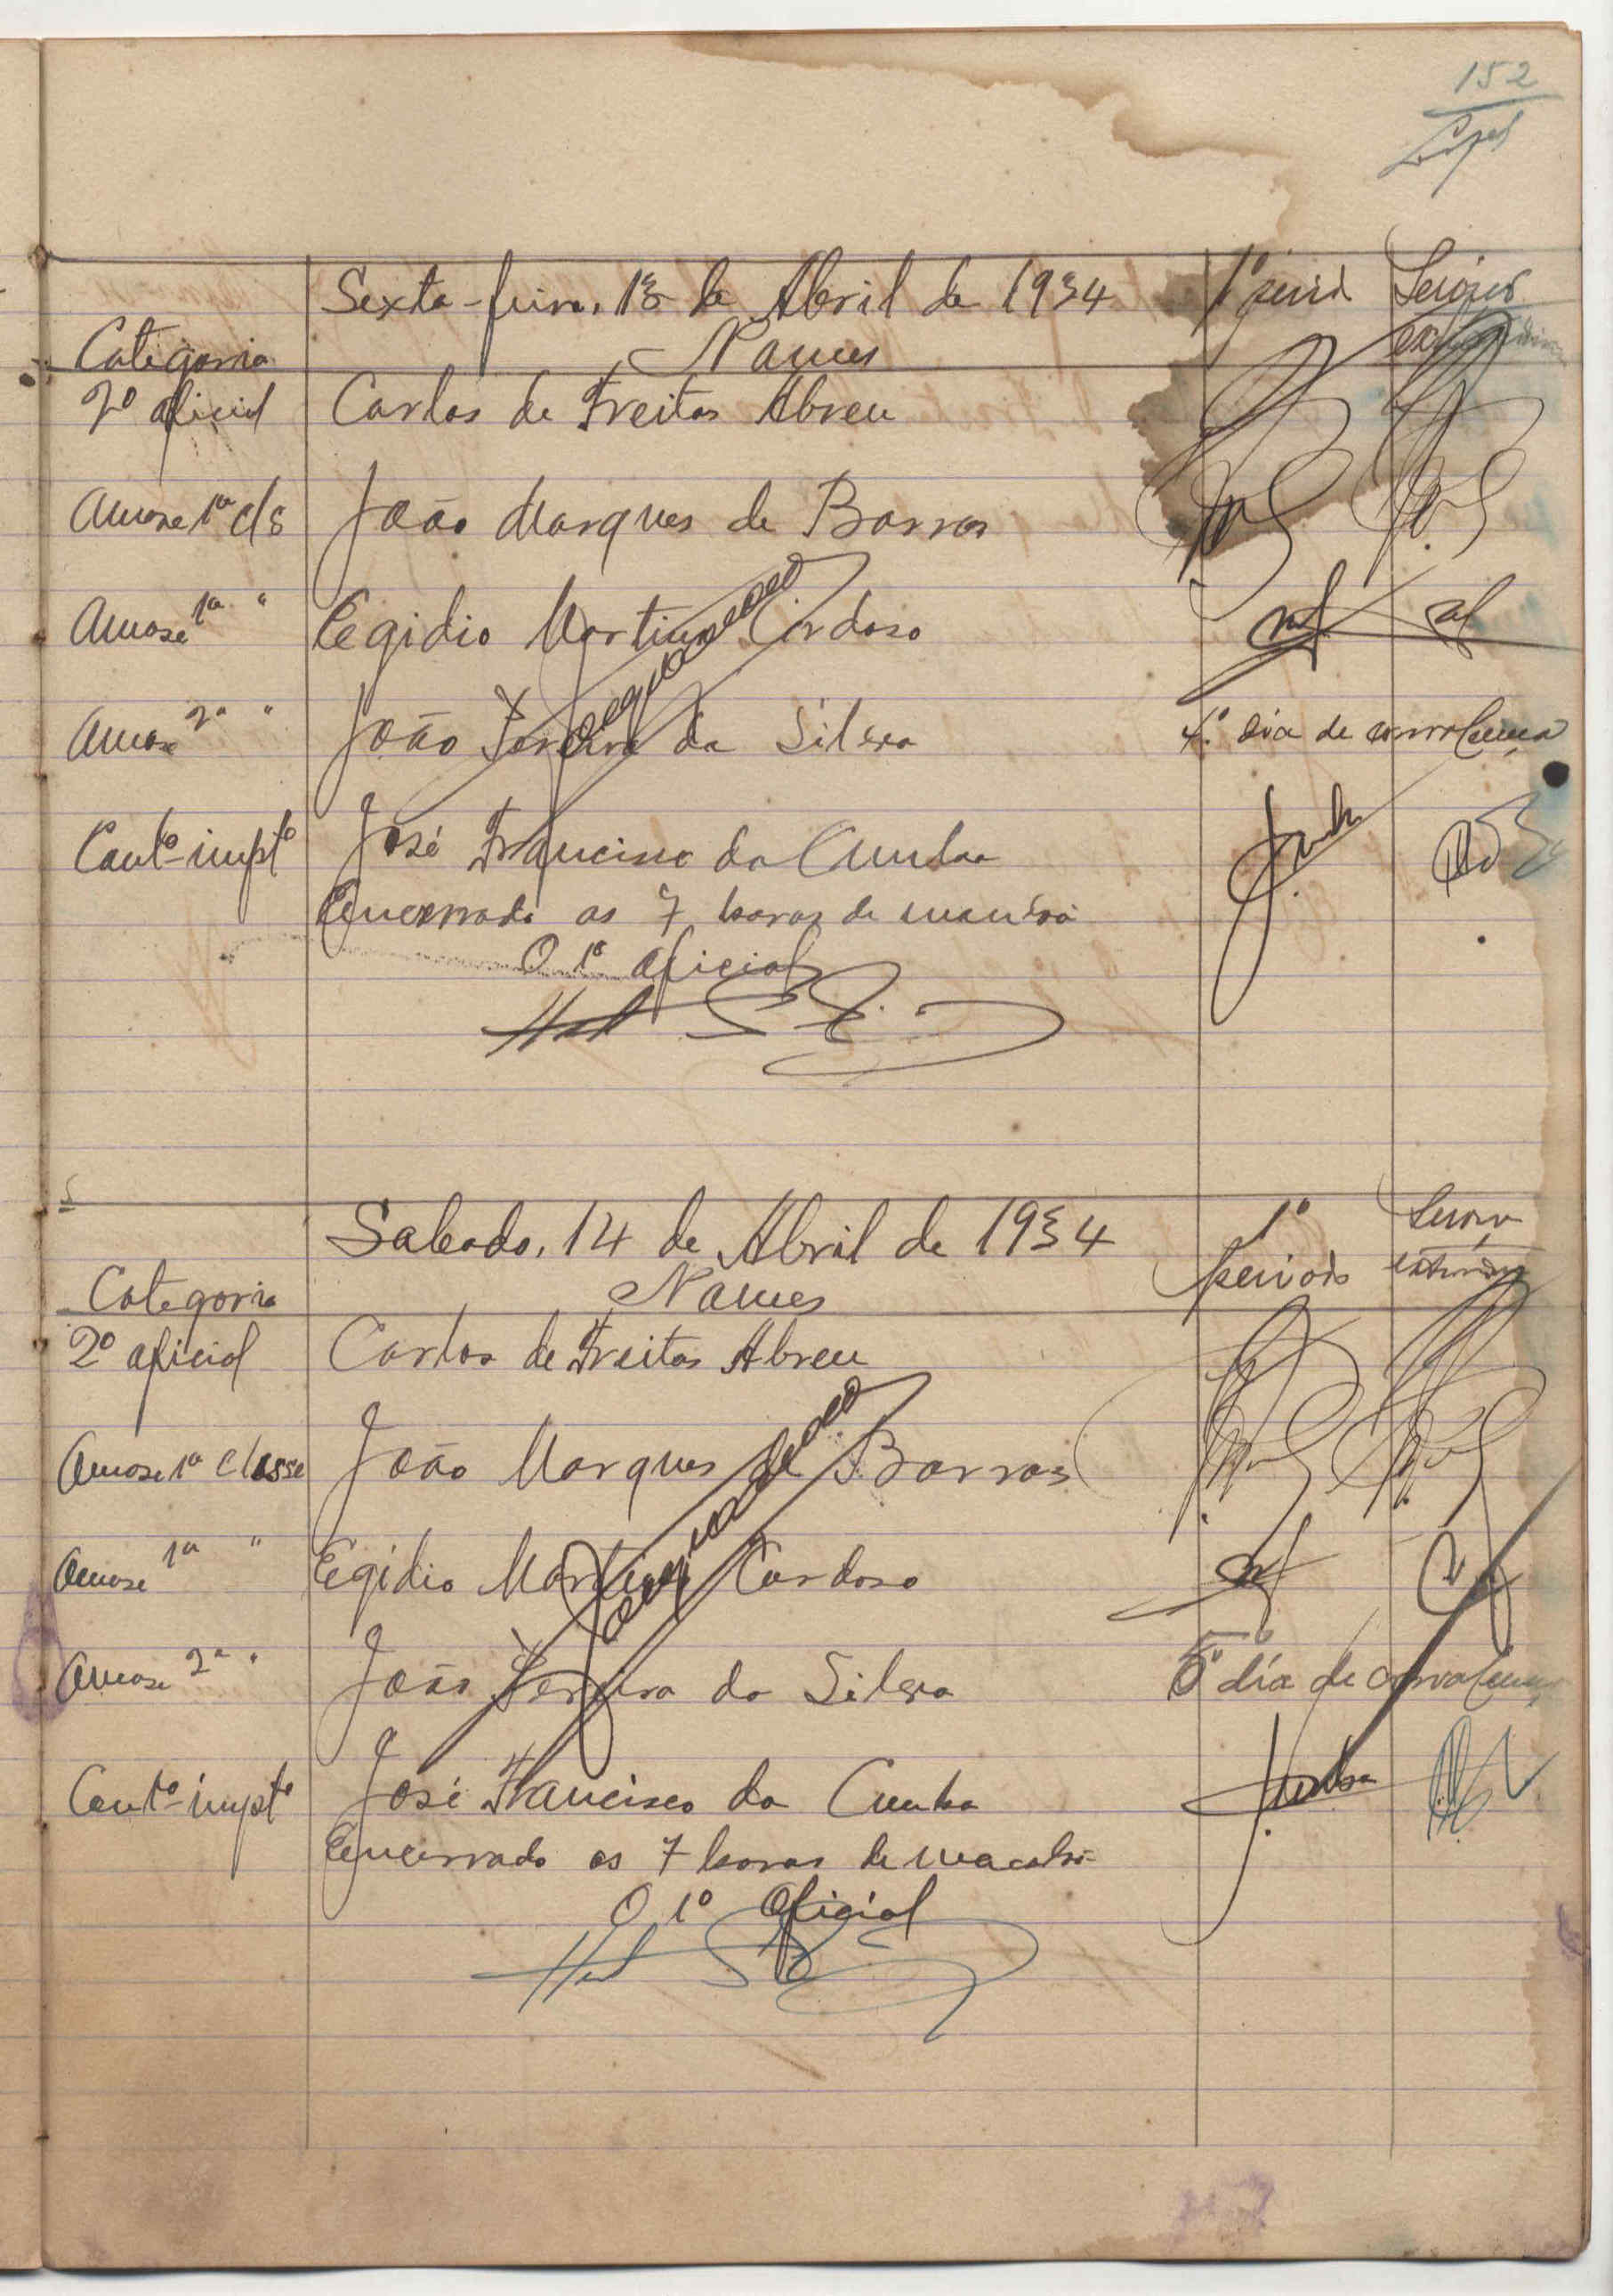 152
Lopes
Sexta-feira, 13 de Abril de 1934 1º períd Serviços
Categoria Nomes
2º oficial Carlos de Freitas Abreu
Amse 1ª cls João Marques de Barros
Amse 1ª " Egidio Martins Cardoso
Amse 2ª " João Ferreira da Silva 4.º dia de convalença
Contº-imptº José Francisco da Cunha
Encerrado as 7 horas de manhã
O 1º oficial
Sabado, 14 de Abril de 1934 1º Serviço
Categoria Nomes periodo
2º oficial Carlos de Freitas Abreu
Amse 1ª classe João Marques de Barros
Amse 1ª " Egidio Martins Cardoso
Amse 2ª " João Ferreira da Silva 5º dia de
Contº-imptº José Francisco da Cunha Cunha
Encerrado as 7 horas de manhã
O 1º Oficial